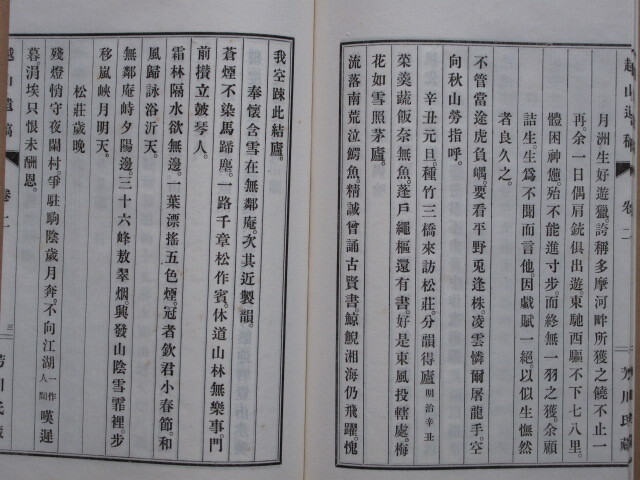 越山遺稿 卷二
月洲生好遊獵。誇稱多摩河畔所獲之饒不止一
再。余一日偶肩銃俱出遊。東馳西驅不下七八里。
體困神憊殆不能進寸步。而終無一羽之獲。余顧
詰生。生爲不聞而言他。因戲賦一絕。以似生憮然
者良久之。
不管當途虎負嵎。要看平野兎逢株。凌雲憐爾屠龍手。空
向秋山勞指呼。
辛丑元旦。種竹三橋來訪松莊。分韻得廬 明治辛丑
菜羹蔬飯奈無魚。蓬戶繩樞還有書。好是東風投轄處。梅
花如雪照茅廬。
流落南荒泣鰐魚。精誠曾誦古賢書。鯨鯢湘海仍飛躍。愧
我空疎此結廬。
奉懷含雪在無鄰庵。次其近製韻。
蒼煙不染馬蹄塵。一路千章松作賓。休道山林無樂事。門
前攢立皷琴人。
霜林隔水欲無邊。一葉漂搖五色煙。冠者欽君小春節。和
風歸詠浴沂天。
無鄰庵峙夕陽邊。三十六峰敖翠烟。興發山陰雪霏裡。步
移嵐峽月明天。
松莊歲晚
殘燈悄守夜闌村。爭駐駒陰歲月奔。不向江湖 一作人間 嘆遲
暮。涓埃只恨未酬恩。
越山遺稿 卷二 三